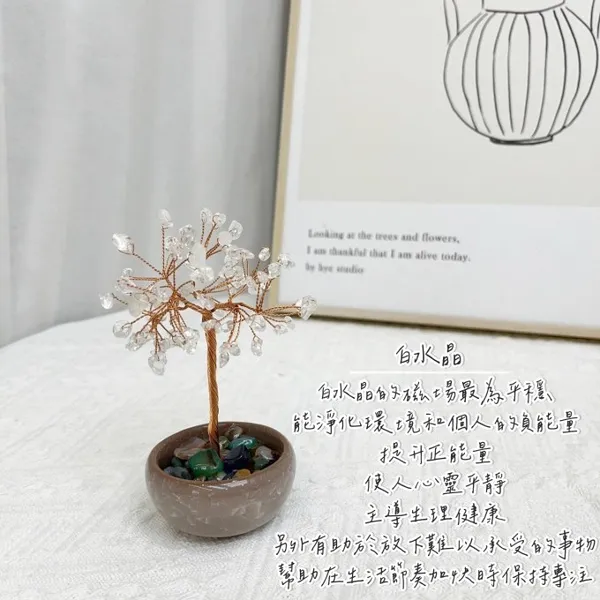 Looking at the trees and flowers,
I am thankful that I am alive today.
by hye studio
白水晶
白水晶的磁場最為平穩
能淨化環境和個人的負能量
提升正能量
使人心靈平靜
主導生理健康
另外有助於放下難以承受的事物
幫助在生活節奏加快時保持專注